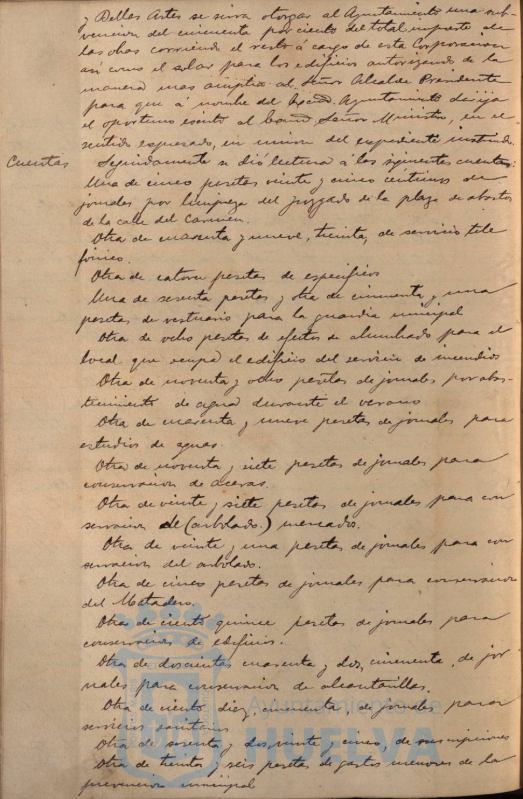 y Bellas Artes se sirva otorgar al Ayuntamiento una sub-
vencion del cincuenta por ciento del total importe de
las obras corriendo el resto á cargo de esta Corporacion
así como el solar para los edificios autorizando de la
manera mas amplia al Señor Alcalde Presidente
para que á nombre del Excmo. Ayuntamiento dirija
el oportuno escrito al Excmo. Señor Ministro, en el
sentido expresado, en union del expediente instruido.
Cuentas Seguidamente se dió lectura á las siguientes cuentas:
Una de cinco pesetas veinte y cinco centimos de
jornales por limpieza del juzgado de la plaza de abastos
de la calle del Carmen.
Otra de cuarenta y nueve, treinta, de servicio tele
fónico.
Otra de catorce pesetas de especificos
Una de sesenta pesetas y otra de cincuenta y una
pesetas de vestuario para la guardia municipal
Otra de ocho pesetas de efectos de alumbrado para el
local que ocupa el edificio del servicio de incendios
Otra de noventa y ocho pesetas de jornales por abas-
tecimiento de agua durante el verano
Otra de cuarenta y nueve pesetas de jornales para
estudios de aguas.
Otra de noventa y siete pesetas de jornales para
conservacion de aceras.
Otra de veinte y siete pesetas de jornales para con
servacion de (arbolado.) mercados.
Otra de veinte y una pesetas de jornales para con
servacion del arbolado.
Otra de cinco pesetas de jornales para conservacion
del Matadero.
Otra de ciento quince pesetas de jornales para
conservacion de edificios.
Otra de doscientas cuarenta y dos, cincuenta, de jor
nales para conservacion de alcantarillas.
Otra de ciento diez, cincuenta, de jornales para
servicios sanitarios
Otra de sesenta y dos, veinte y cinco, de suscripciones
Otra de treinta y seis pesetas de gastos menores de la
prevencion municipal
Ayuntamiento de
HUELVA